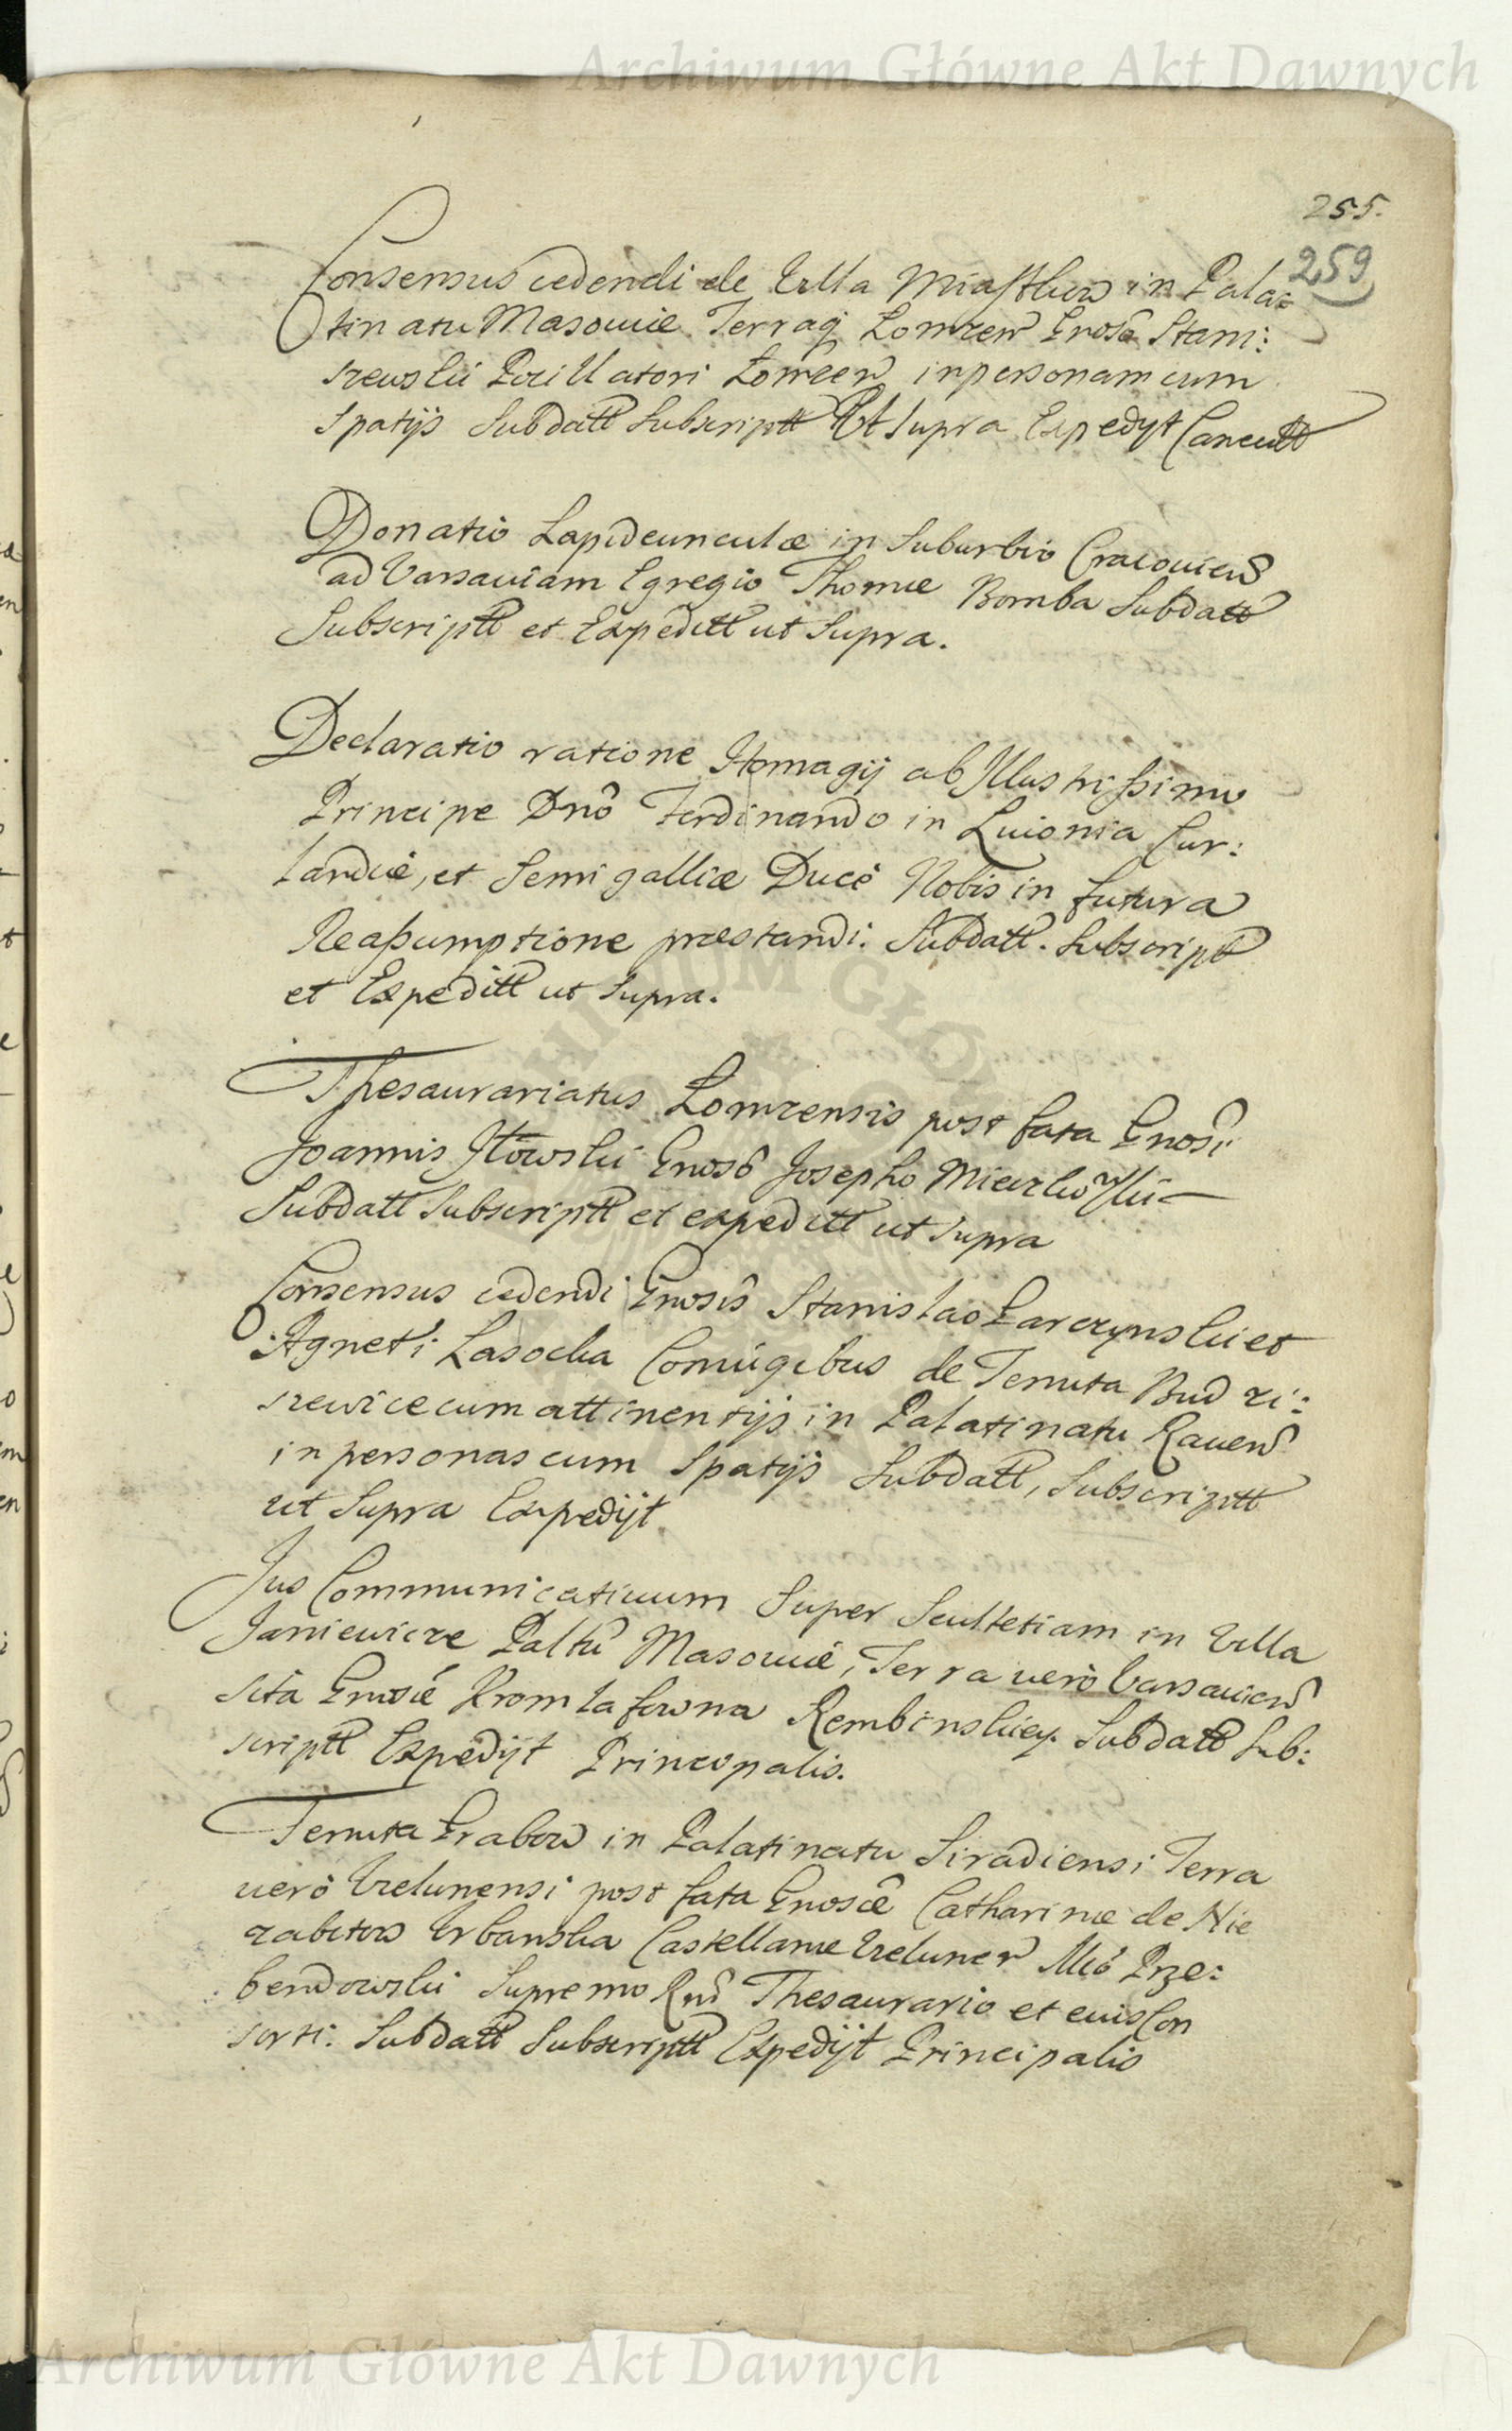 Archiwum Główne Akt Dawnych
255.
259
Consensus cedendi de Villa Miastkow in Pala:
tinatu Masoviæ Terraq Lomzen Gnoso Stani:
szewski Pocillatori Łomzen in personam cum
Spatijs Subdatt Subscriptt Ut supra Expedyt Cancutt
Donatio Lapideunculæ in Suburbio Cracoviens
ad Varsaviam Egregio Thomæ Bomba Subdatt
Subscriptt et Expeditt ut Supra.
Declaratio ratione Homagij ab Illustrissimo
Principe Dnô Ferdinando in Livonia Cur:
landiæ, et Semigalliæ Ducé Nobis in futura
Reassumptione præstandi: Subdatt. Subscript
et Expeditt ut Supra.
Thesaurariatus Lomzensis post fata Gnosi
Joannis Iłowski Gnoso Josepho Mieczkowski
Subdatt Subscriptt et expeditt ut Supra
Consensus cedendi Gnosis Stanislao Garczynski et
Agneti Lasocka Coniugibus de Tenuta Bud zi:
szewice cum attinentijs in Palatinatu Raven
in personas cum Spatijs Subdatt, Subscriptt
ut Supra Expedijt
Jus Communicativum Super Scultetiam in Villa
Janiewicze Palttu Masoviæ, Terra verò Varsavien
sita Gnosæ Kromlafowna Rembinskiey. Subdatt Sub:
scriptt Expedijt Principalis.
Tenuta Grabow in Palatinatu Siradiensi Terra
verò Vielunensi post fata Gnosæ Catharinæ de Nie
zabitow Urbanska Castellanæ Vielunen Mco Prze:
bendowski Supremo Rni Thesaurario et eius Con
sorti: Subdatt Subscriptt Expedijt Principalis
Archiwum Główne Akt Dawnych